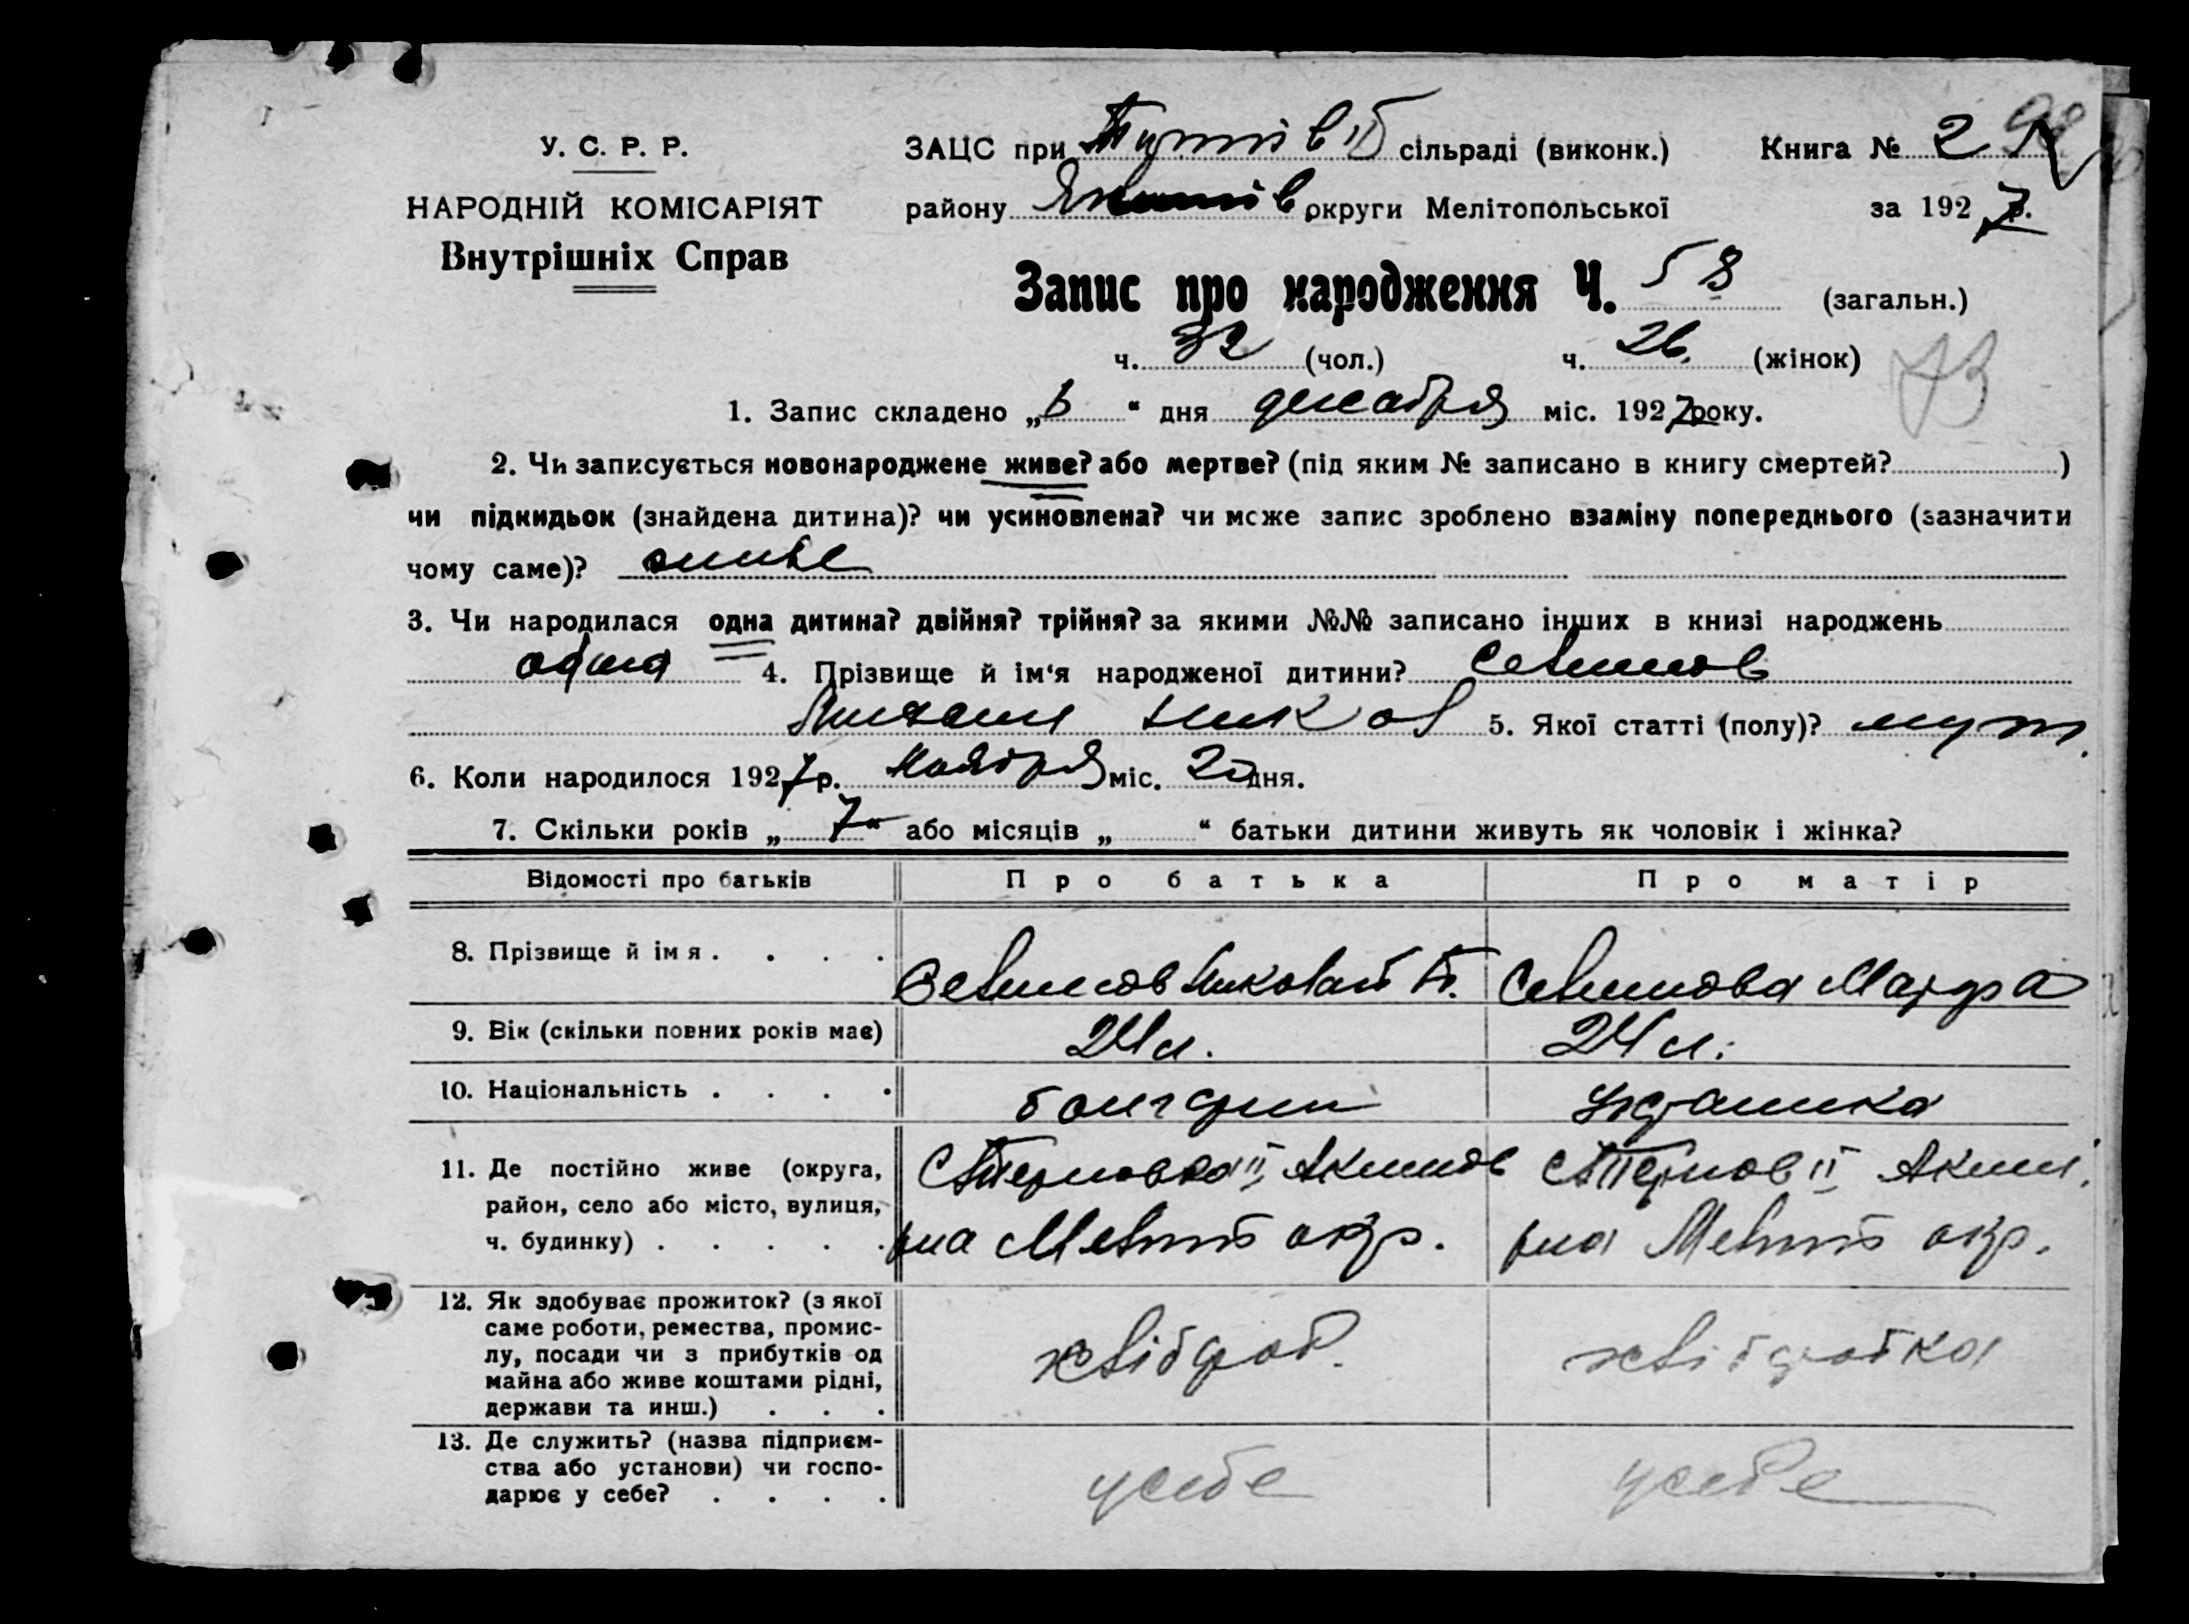 У. С. Р. Р.
НАРОДНІЙ КОМІСАРІЯТ
Внутрішніх Справ
ЗАЦС при сільраді (виконк.)
Книга № 2
району округи Мелітопольської
за 1927 р.
Запис про народження Ч. 58 (загальн.)
ч. 32 (чол.) ч. 26. (жінок)
1. Запис складено „ “ дня декабря міс. 1927 року.
2. Чи записується новонароджене живе? або мертве? (під яким № записано в книгу смертей? )
чи підкидьок (знайдена дитина)? чи усиновлена? чи може запис зроблено взаміну попереднього (зазначити
чому саме)? живе
3. Чи народилася одна дитина? двійня? трійня? за якими №№ записано інших в книзі народжень
одна 4. Прізвище й ім‘я народженої дитини?
5. Якої статті (полу)? муж.
6. Коли народилося 1927 р. ноября міс. 20 дня.
7. Скільки років „ 7 “ або місяців „ “ батьки дитини живуть як чоловік і жінка?
Відомості про батьків Про батька Про матір
8. Прізвище й ім я . . . . Николай Марфа
9. Вік (скільки повних років має) 24 л. 24 л.
10. Національність . . . . болгарин
11. Де постійно живе (округа,
район, село або місто, вулиця,
ч. будинку) . . . . . р-на Мелит окр. р-на Мелит окр.
12. Як здобуває прожиток? (з якої
саме роботи, ремества, промис-
лу, посади чи з прибутків од
майна або живе коштами рідні,
держави та инш.) . . . хлібороб. хліборобка
13. Де служить? (назва підприєм-
ства або установи) чи госпо-
дарює у себе? . . . . у себе у себе